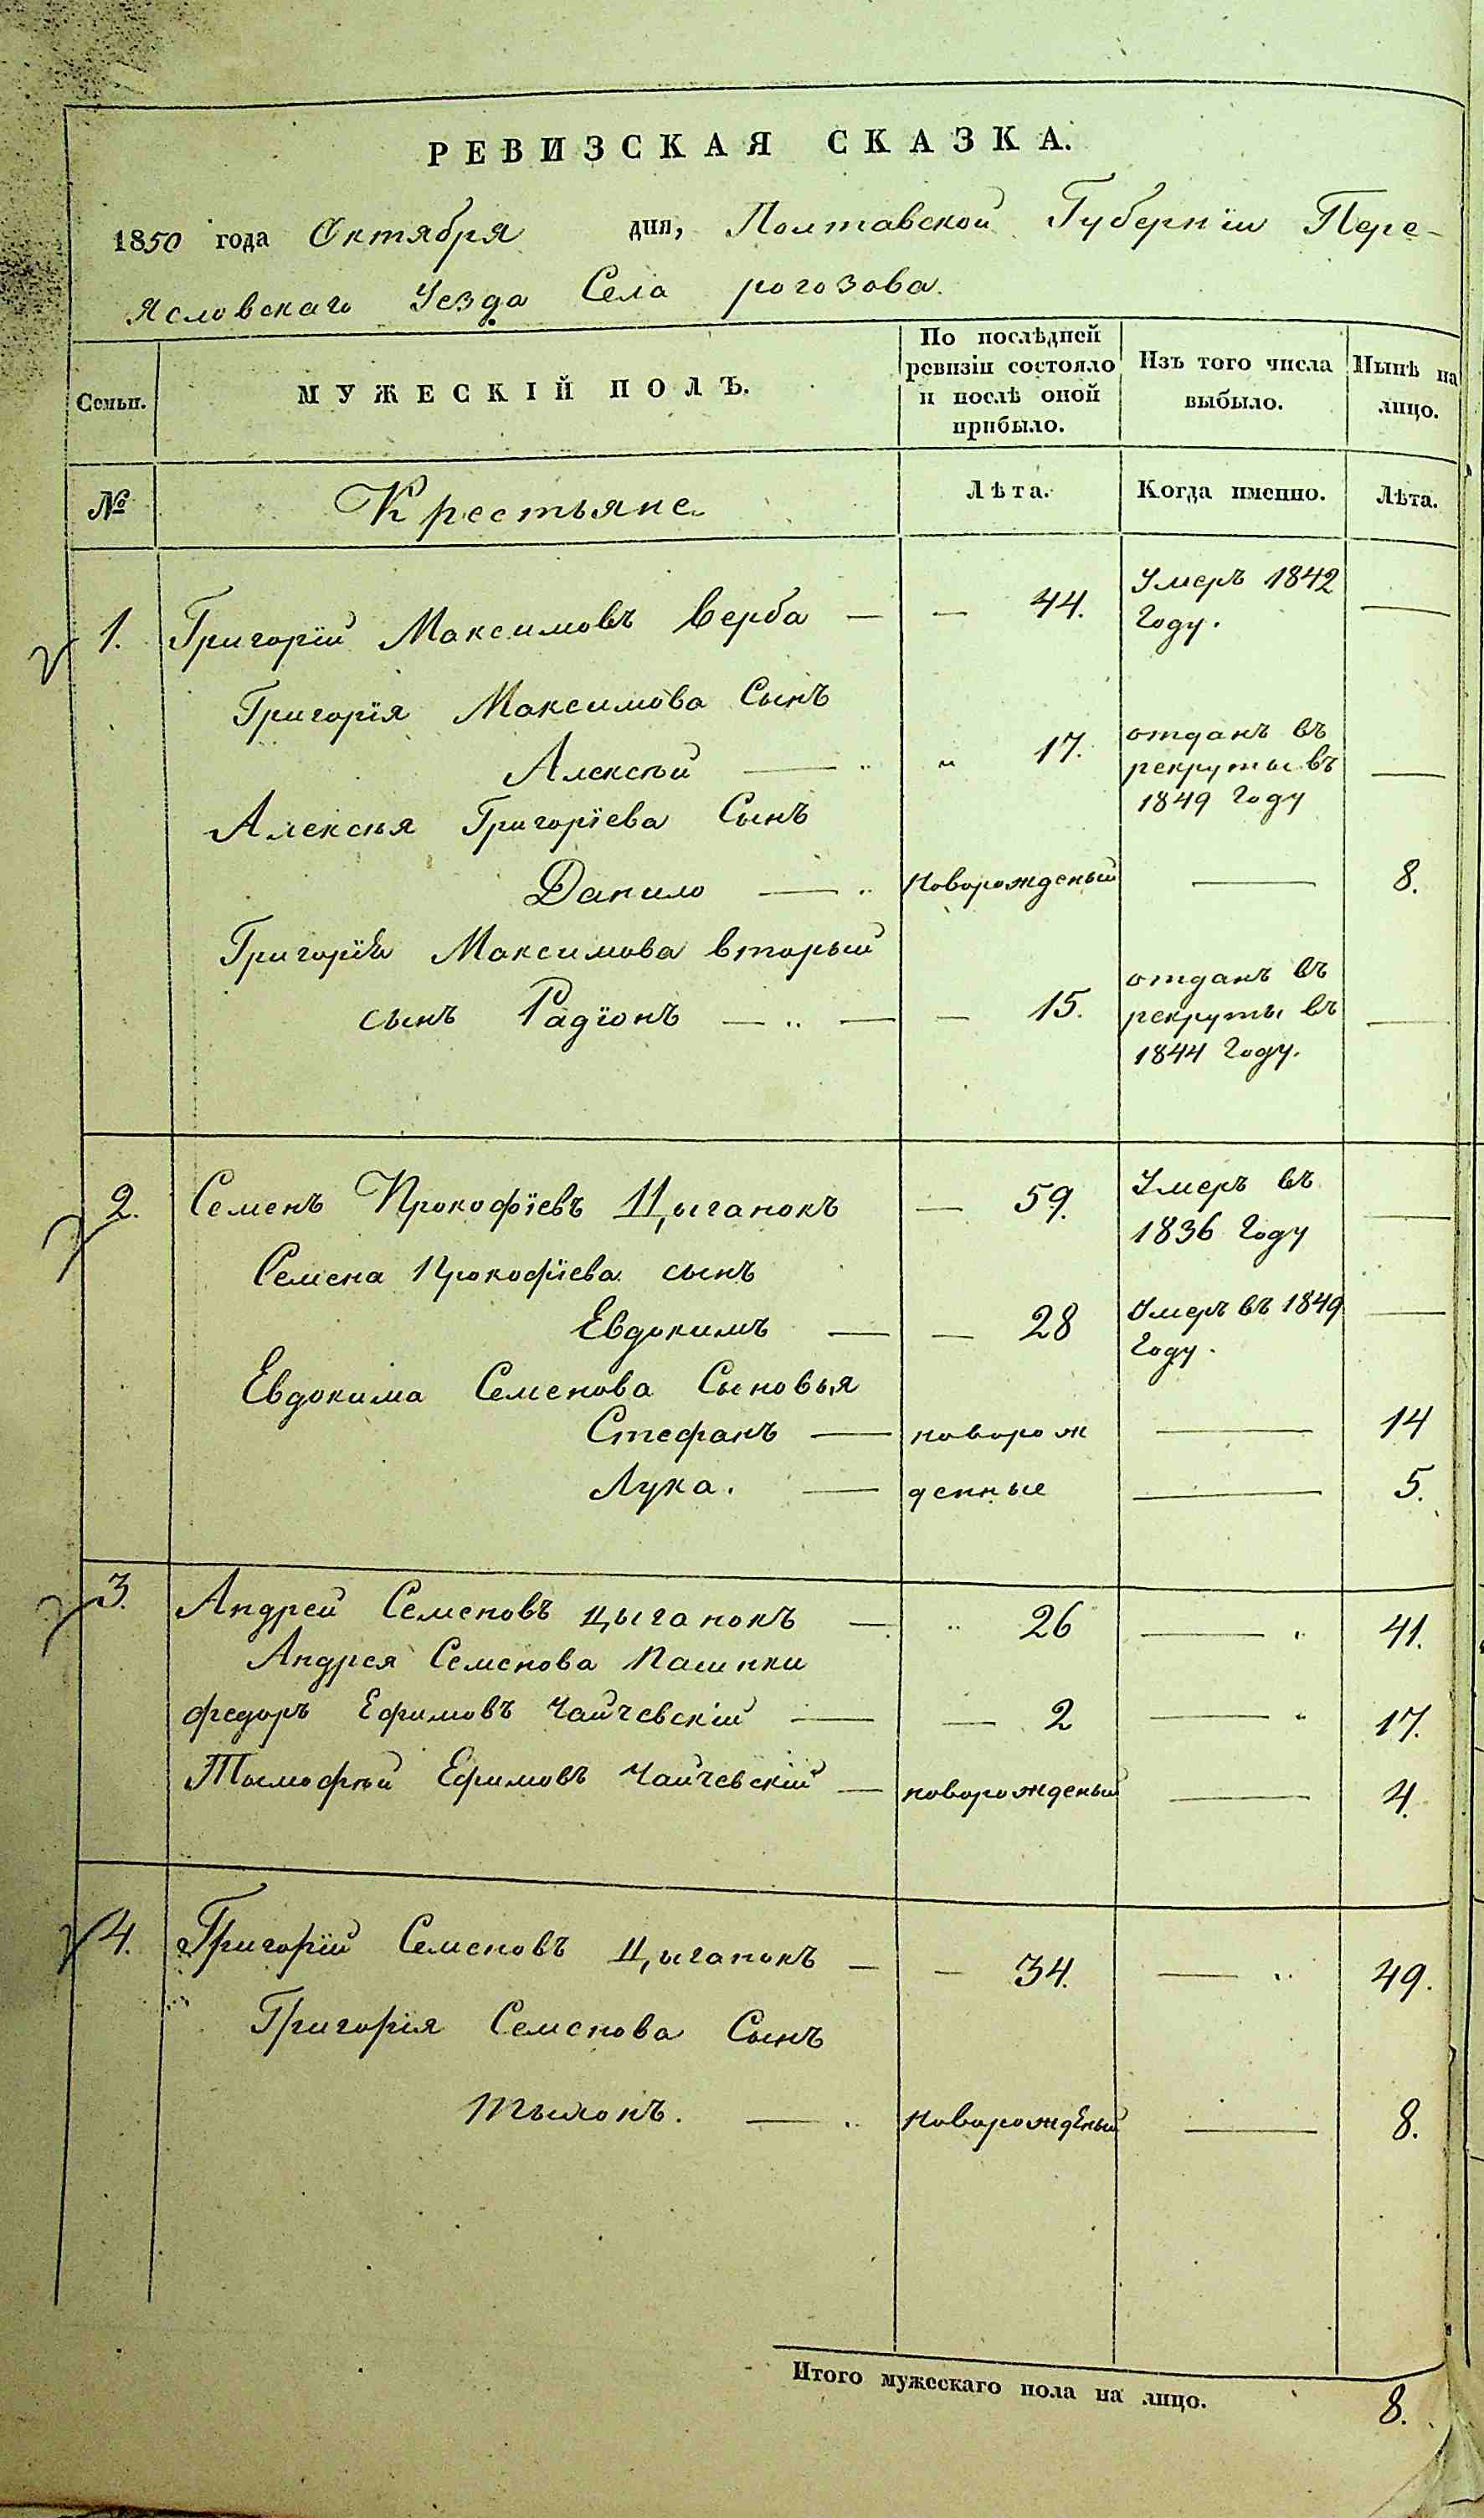 РЕВИЗСКАЯ СКАЗКА.
1850 года Октября дня, Полтавской Губернїи Пере-
Ясловскаго Уезда Села рогозова.
Семьи. МУЖЕСКІЙ ПОЛЪ. По послѣдней ревизіи состояло и послѣ оной прибыло. Изъ того числа выбыло. Нынѣ на лицо.
№ Крестьяне. Лѣта. Когда именно. Лѣта.
1. Григорїй Максимовъ Верба — — 44. Умеръ 1842 —
Году.
Григорїя Максимова Сынъ
Алексѣй — „ 17. отданъ въ рекруты въ —
1849 Году
Алексѣя Григорїева Сынъ
Данило — Новорожденый — 8.
Григорїя Максимова вторый
сынъ Радїонъ — — — 15. отданъ въ рекруты въ —
1844 Году.
2. Семенъ Прокофїевъ Цыганокъ — 59. Умеръ въ —
1836 Году
Семена Прокофїева сынъ
Евдокимъ — — 28 Умеръ въ 1849 —
Году.
Евдокима Семенова Сыновья
Стефанъ — новорож — 14
Лука. — денные — 5.
3. Андрей Семеновъ цыганокъ — „ 26 — 41.
Андрея Семенова Пасинки
федоръ Ефимовъ Чайчевскій — — 2 — 17.
Тымофѣй Ефимовъ Чайчевскій — новорожденый — 4.
4. Григорїй Семеновъ Цыганокъ — — 34. — 49.
Григорїя Семенова Сынъ
Тыхонъ. — Новорожденый — 8.
Итого мужескаго пола на лицо. 8.